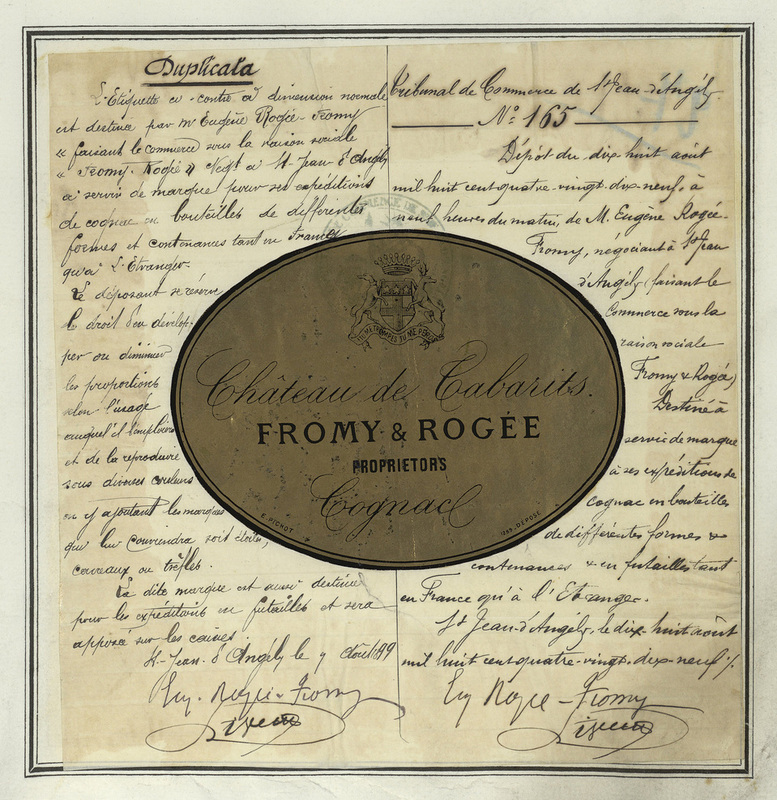 Duplicata
L'Etiquette ci-contre à dimension normale
est destinée par Mr Eugène Rogée-Fromy
« faisant le commerce sous la raison sociale
« Fromy. Rogée » Negt à St-Jean d'Angély
à servir de marque pour ses expéditions
de cognac en bouteilles de différentes
formes et contenances tant en France
qu'à L'Etranger.
Le déposant se réserve
le droit d'en dévelop-
per ou diminuer
les proportions
selon l'usage
auquel il l'emploiera
et de la reproduire
sous divers couleurs
en y ajoutant les marques
que lui conviendra soit étoiles,
carreaux ou trèfles.
La dite marque est aussi destinée
pour les expéditions en futailles et sera
apposé sur les caisses.
St-Jean d'Angély le 9 Août 1899
Eug. Rogée-Fromy
Tribunal de Commerce de St Jean d'Angély.
No 165
Dépôt du dix huit août
mil huit cent quatre-vingt-dix-neuf, à
neuf heures du matin, de M. Eugène Rogée-
Fromy, négociant à St Jean
d'Angély (faisant le
Commerce sous la
raison sociale
Fromy & Rogée)
Destiné à
servir de marque
à ses expéditions de
cognac en bouteilles
de différentes formes &
contenances & en futailles tant
en France qu'à l'Etranger.
St Jean-d'Angély, le dix huit août
mil huit cent quatre-vingt-dix-neuf /.
Eug Rogée-Fromy
Château de Tabarits.
FROMY & ROGÉE
PROPRIETORS
Cognac
E. PICHOT
1899, DÉPOSÉ